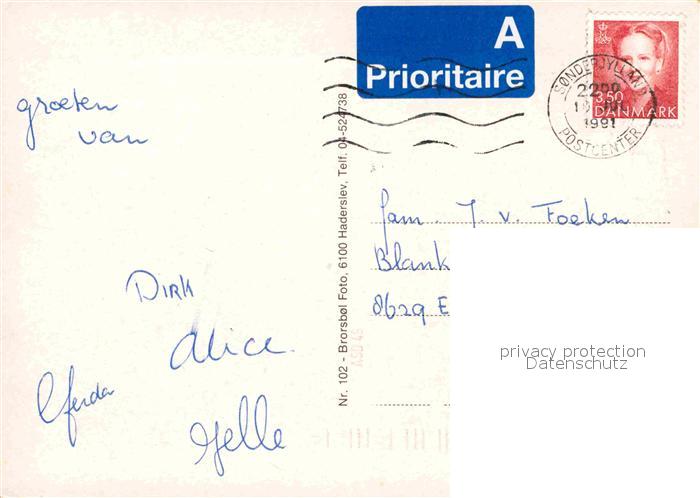 groeten
van
Dirk
Alice
Gerda
Jelle
Nr. 102 - Brorsbøl Foto, 6100 Haderslev, Telf. 04-524738
A
Prioritaire
SØNDERJYLLAND
POSTCENTER
1991
3.50
DANMARK
fam. J. v. Foeken
Blank
8629 E
ASD 45
privacy protection
Datenschutz